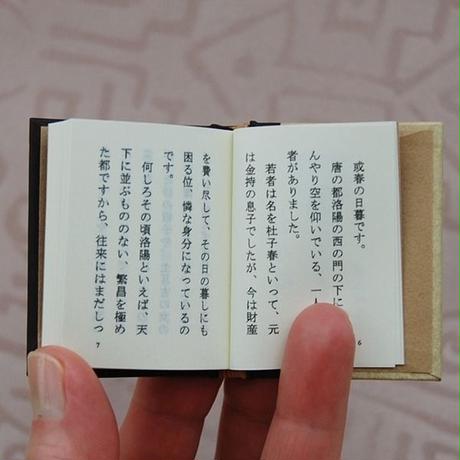 或春の日暮です。
唐の都洛陽の西の門の下に
んやり空を仰いでいる、一人
者がありました。
若者は名を杜子春といって、元
は金持の息子でしたが、今は財産
6
を費い尽して、その日の暮しにも
困る位、憐な身分になっているの
です。
何しろその頃洛陽といえば、天
下に並ぶもののない、繁昌を極め
た都ですから、往来にはまだしっ
7